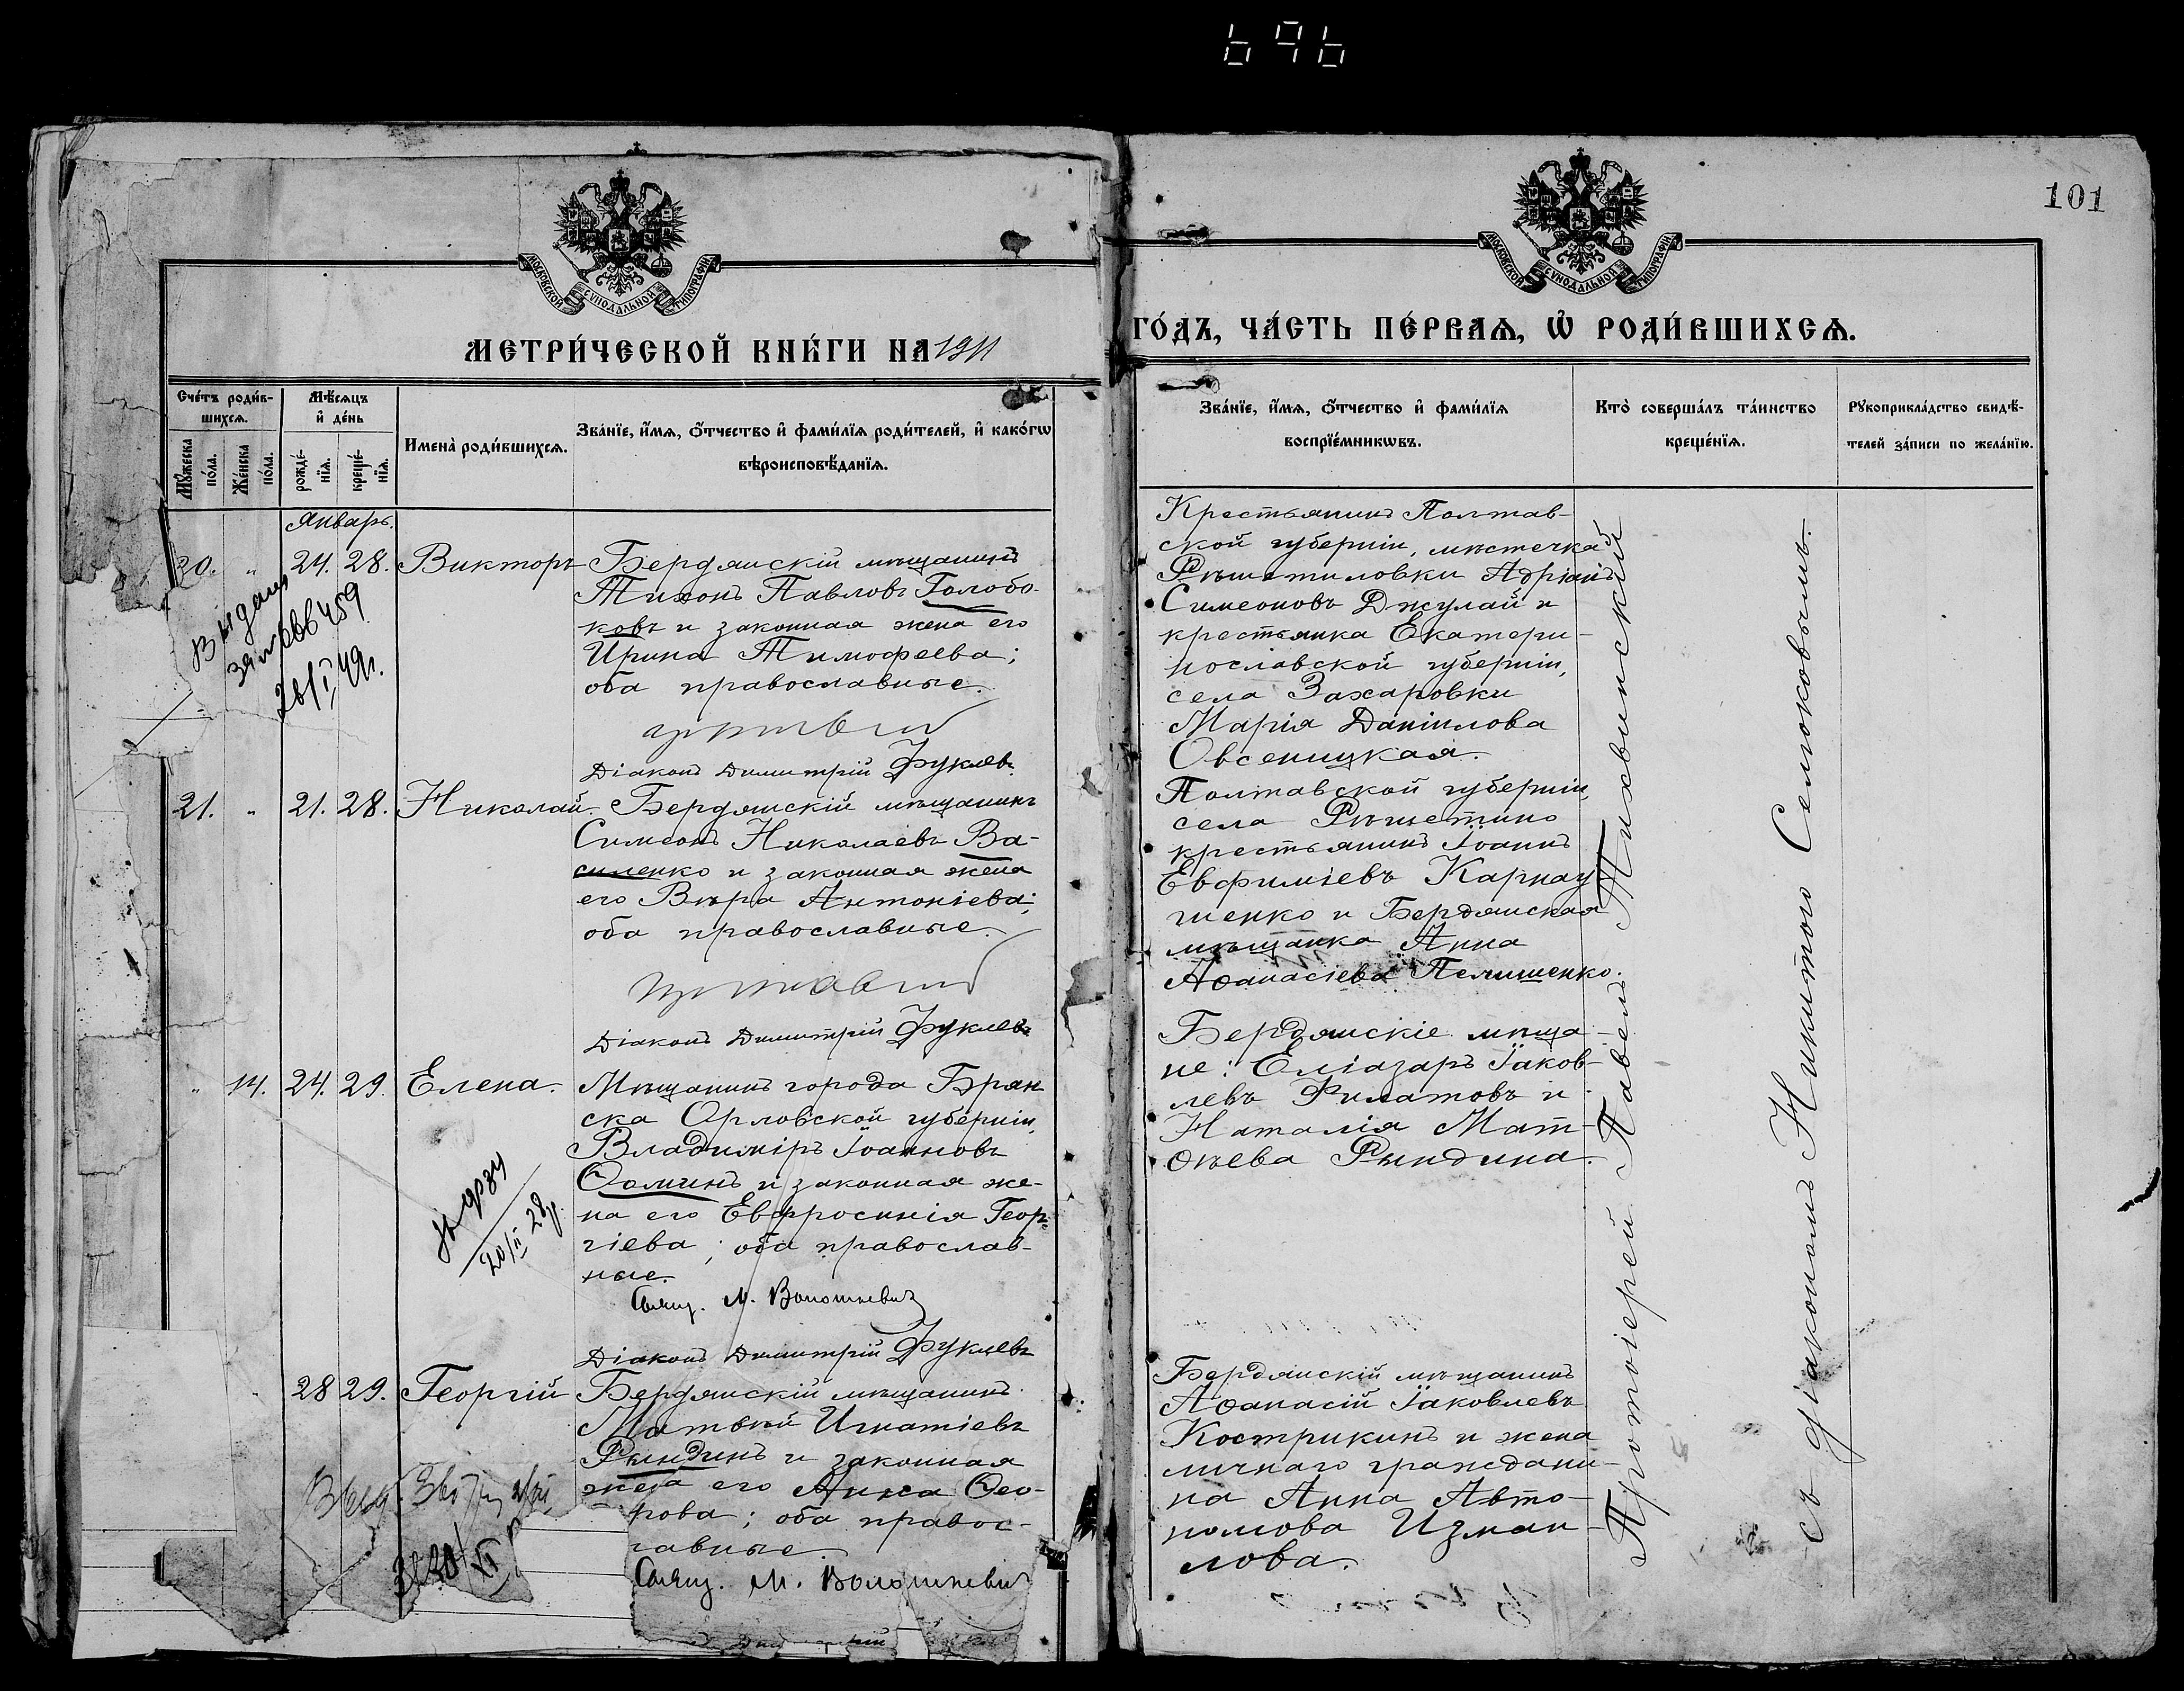 696
101
МОСКОВСКОЙ СѴНОДАЛЬНОЙ ТИПОГРАФІИ
МОСКОВСКОЙ СѴНОДАЛЬНОЙ ТИПОГРАФІИ
МЕТРИ́ЧЕСКОЙ КНИ́ГИ НА 1911
ГО́ДЪ, ЧА́СТЬ ПЕ́РВАѦ, Ѡ҆ РОДИ́ВШИХСѦ.
Сче́тъ роди́в-
шихсѧ.
Мꙋ́жеска
по́ла.
Же́нска
по́ла.
Мѣ́сѧцъ
и҆ де́нь
рожде́-
нїѧ.
креще́-
нїѧ.
Имена̀ роди́вшихсѧ.
Зва́нїе, и҆́мѧ, ѻ҆́тчество и҆ фами́лїѧ роди́телей, и҆ како́гѡ
вѣроисповѣ́данїѧ.
Зва́нїе, и҆́мѧ, ѻ҆́тчество и҆ фами́лїѧ
воспрїе́мникѡвъ.
Кто̀ соверша́лъ та́инство
креще́нїѧ.
Рꙋкоприкла́дство свидѣ́-
телей за́писи по жела́нїю.
Январь.
20. " 24. 28. Викторъ
Бердянскій мѣщанинъ
Тихонъ Павловъ Голобо-
ковъ и законная жена его
Ирина Тимофеева;
оба православные.
Діаконъ Димитрій Фуклевъ
Выдано
459
26/I 49г.
Крестьянинъ Полтав-
ской губерніи, мѣстечка
Рѣшетиловки Адріанъ
Симеоновъ Джулай и
крестьянка Екатери-
нославской губерніи,
села Захаровки
Марія Даніилова
Овсеницкая.
21. " 21. 28. Николай.
Бердянскій мѣщанинъ
Симеонъ Николаевъ Ва-
силенко и законная жена
его Вѣра Антоніева;
оба православные.
Діаконъ Димитрій Фуклевъ
Полтавской губерніи,
села Рѣшетино
крестьянинъ Іоаннъ
Евфиміевъ Карнау
шенко и Бердянская
мѣщанка Анна
Аѳанасіева Пелишенко.
" 14. 24. 29. Елена.
Мѣщанинъ города Брян
ска Орловской губерніи,
Владиміръ Іоанновъ
Ѳоминъ и законная же-
на его Евфросинія Геор-
гіева; оба православ-
ные.
Свящ. М. Волошкевичъ
Діаконъ Димитрій Фуклевъ
20/II 28г.
Бердянскіе мѣща-
не: Еліазаръ Іаков-
левъ Филатовъ и
Наталія Мат-
ѳѣева Рындина.
" 28 29. Георгій
Бердянскій мѣщанинъ
Матвѣй Игнатіевъ
Рындинъ и законная
жена его Анна Ѳео-
рова; оба правос-
лавные.
Свящ. М. Волошкевичъ
Бердянскій мѣщанинъ
Аѳанасій Іаковлевъ
Кострикинъ и жена
личнаго граждани-
на Анна Авто-
номова Измаи-
лова.
Протоіерей Павелъ Тихвинскій
съ діакономъ Никитою Селюковымъ.